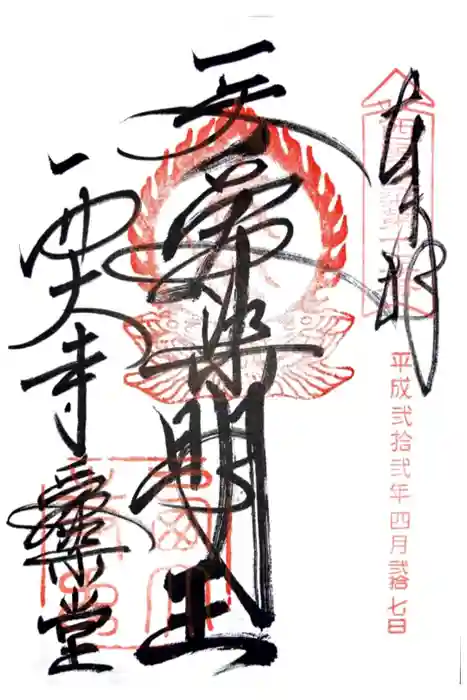 奉拝
平成弐拾弐年四月弐拾七日
愛染明王
西大寺愛染堂